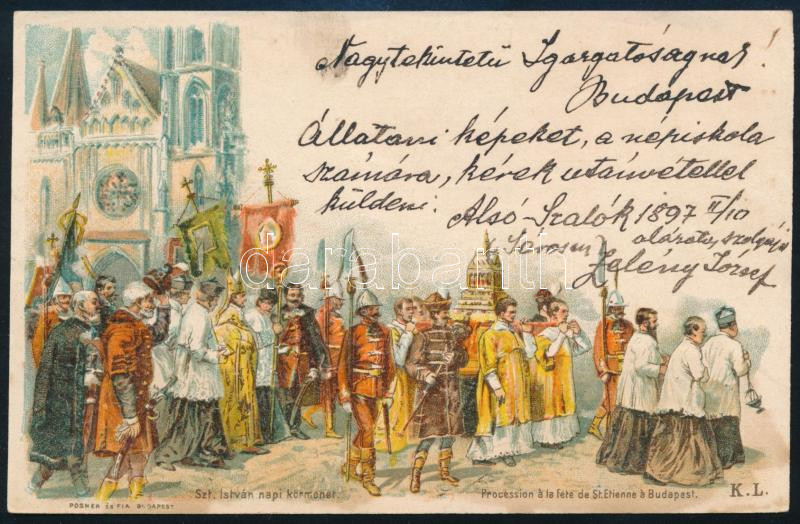 Nagytekintetű Igazgatóságnak!
Budapest
Állattani képeket, a népiskola
számára, kérek utánvétellel
küldeni. Alsó-Szalók 1897 II/10
alázatos szolgája
Zelény József
darabanth
Szt. István napi körmenet.
Procession à la fête de St. Etienne à Budapest.
K. L.
POSNER ÉS FIA BUDAPEST